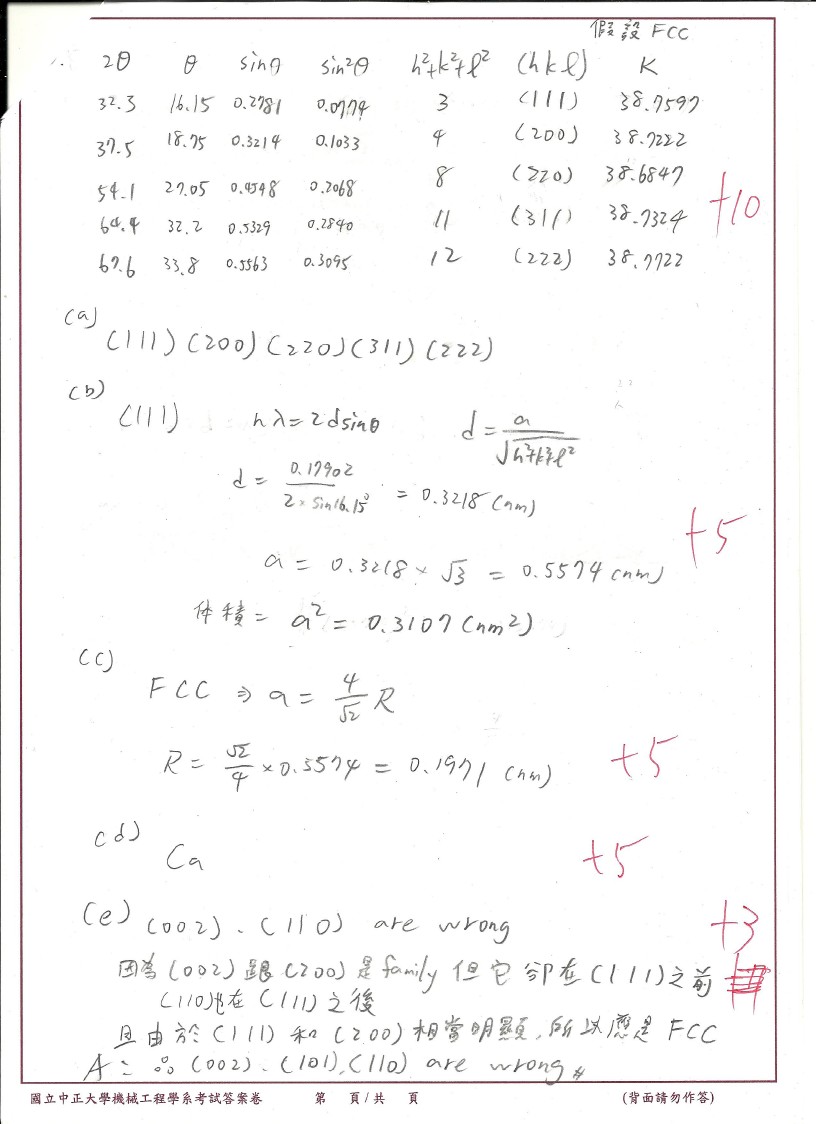 假設 FCC
1. 2θ θ sinθ sin²θ h²+k²+l² (hkl) K
32.3 16.15 0.2781 0.0774 3 (111) 38.7597
37.5 18.75 0.3214 0.1033 4 (200) 38.7222
54.1 27.05 0.4548 0.2068 8 (220) 38.6847
64.4 32.2 0.5329 0.2840 11 (311) 38.7324
67.6 33.8 0.5563 0.3095 12 (222) 38.7722
+10
(a)
(111) (200) (220) (311) (222)
(b)
(111) nλ=2dsinθ d = a/√h²+k²+l²
d = 0.17902/2×sin16.15° = 0.3218 (nm)
+5
a = 0.3218 × √3 = 0.5574 (nm)
体積 = a² = 0.3107 (nm²)
(c)
FCC ⇒ a = 4/√2 R
R = √2/4 × 0.5574 = 0.1971 (nm)
+5
(d)
Ca
+5
(e) (002)、(110) are wrong
+3
因為 (002) 跟 (200) 是 family 但它卻在 (111) 之前
(110)也在 (111) 之後
且由於 (111) 和 (200) 相當明顯,所以應是 FCC
A:品 (002)、(101)、(110) are wrong #
國立中正大學機械工程學系考試答案卷 第 頁/共 頁 (背面請勿作答)